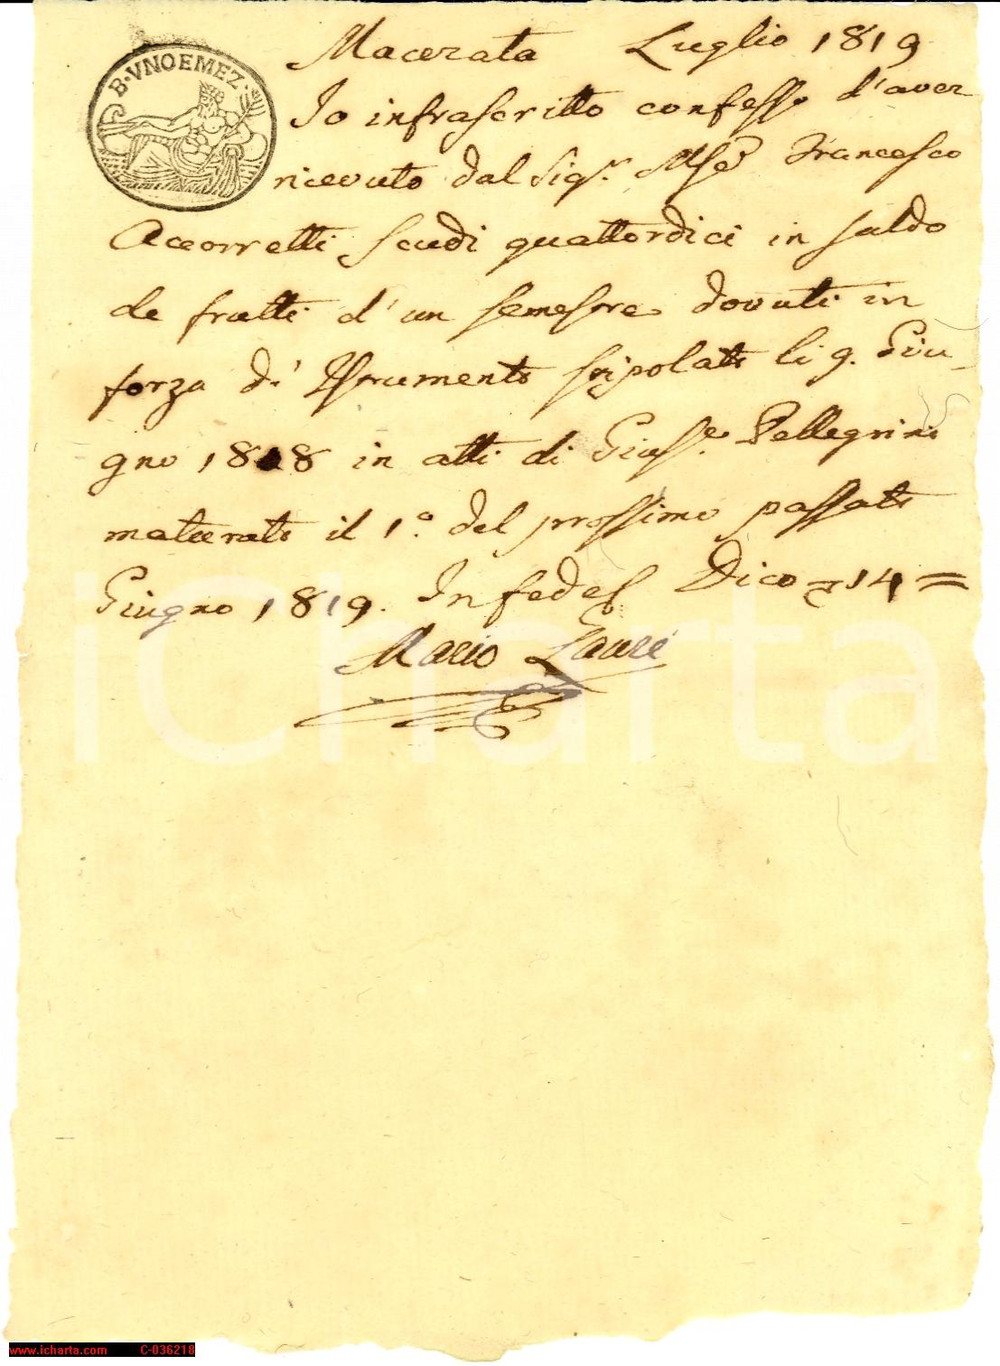 Macerata Luglio 1819
B. VNOEMEZ.
Io infrascritto confesso d'aver
ricevuto dal Sigr. Mse Francesco
Accorretti scudi quattordici in saldo
de frutti d'un semestre dovuti in
forza di Istrumento stipolato li 9. Giu
gno 1818 in atti di Giuse. Pellegrini
maturato il 1o. del prossimo passato
Giugno 1819. In fede Dico 14=
Mario Lauri
iCharta
www.icharta.com C-036218